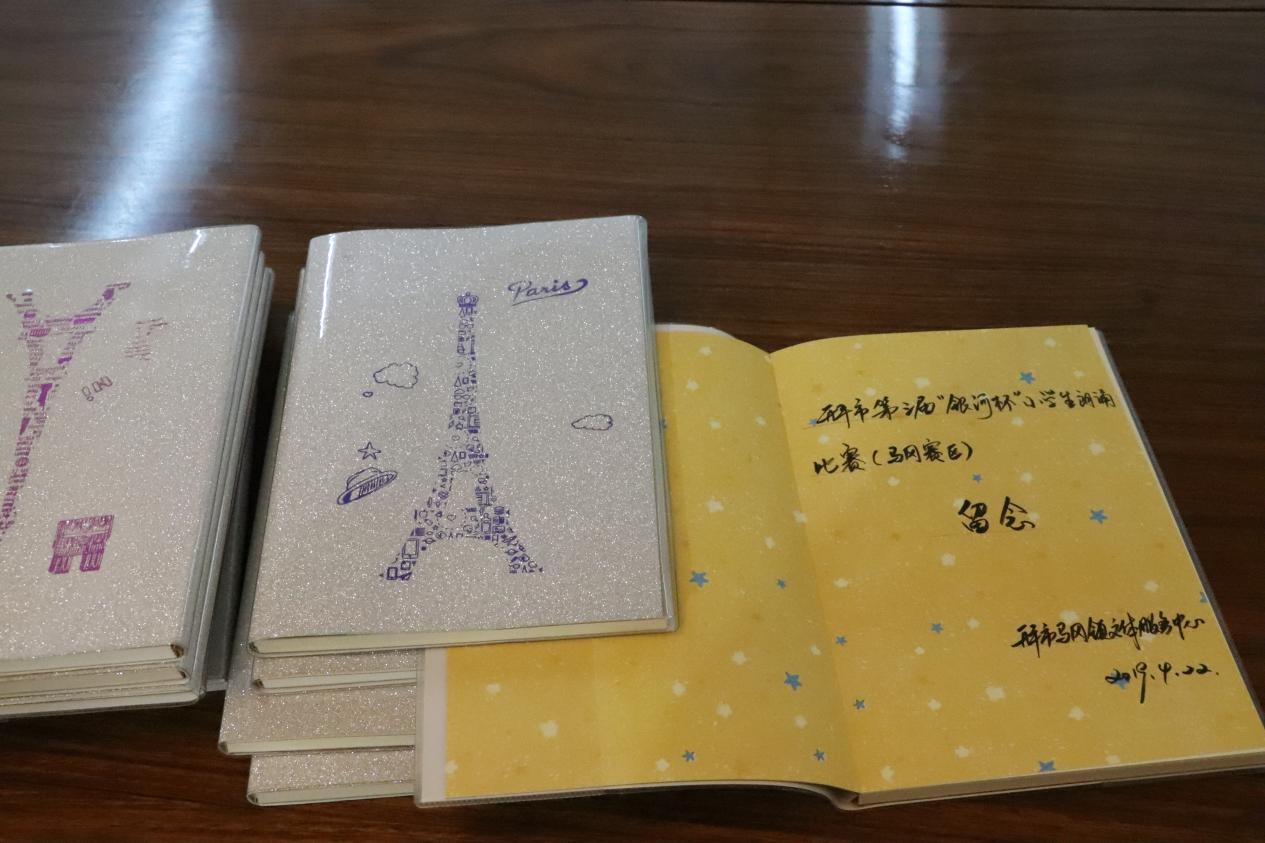 Paris
开平市第三届"银河杯"小学生朗诵
比赛(马冈赛区)
留念
开平市马冈镇文体服务中心
2019.4.22.